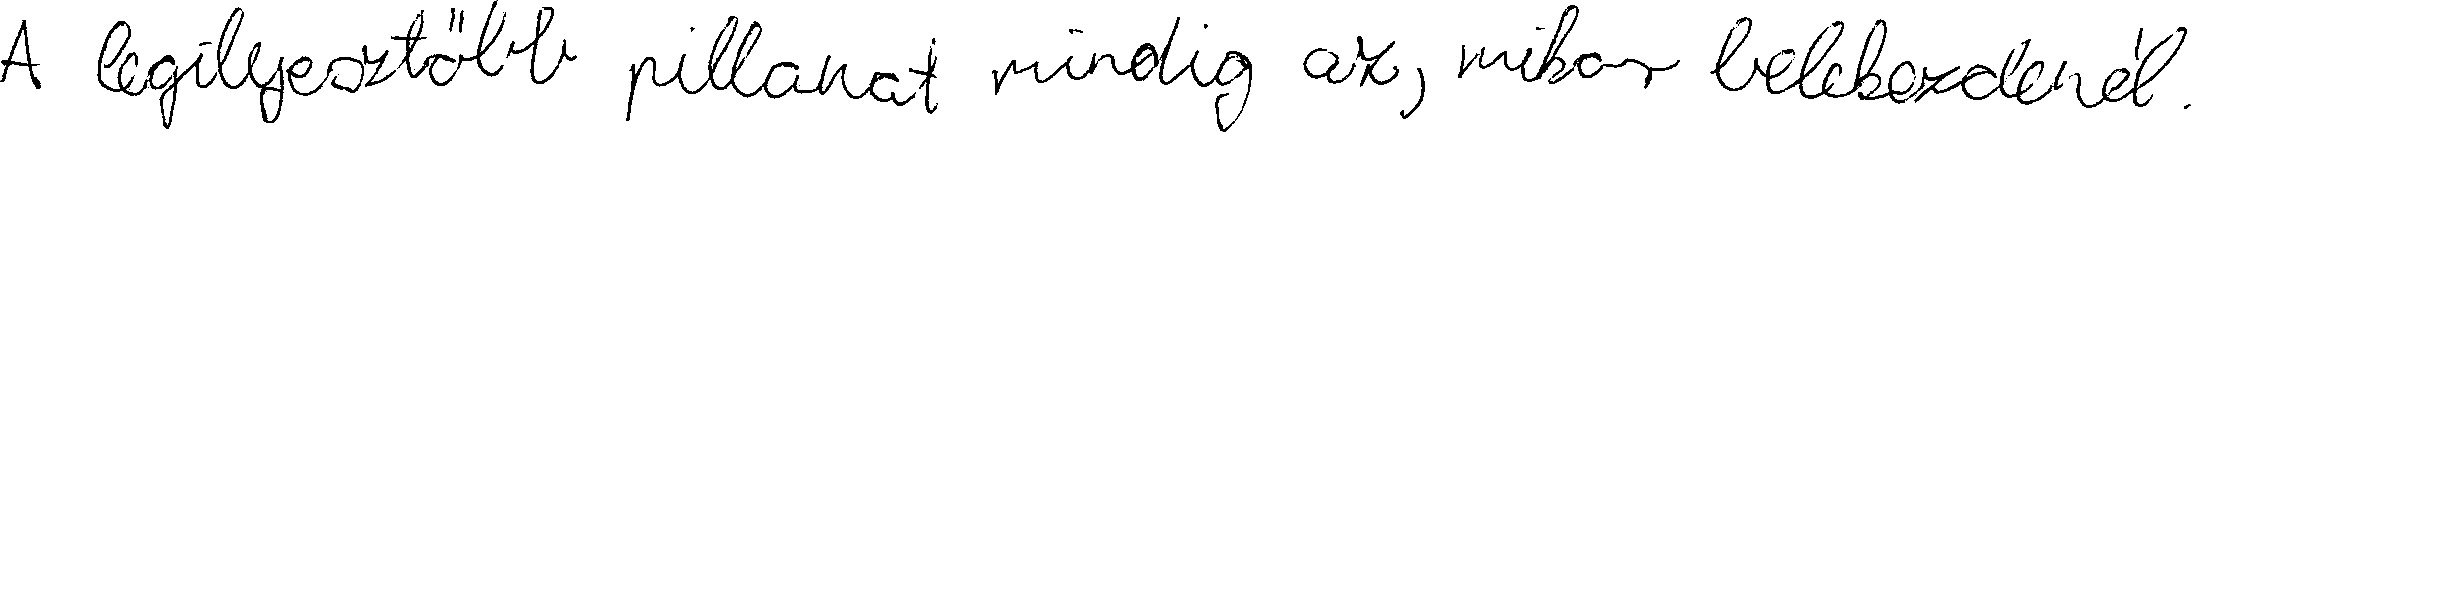 A legilyesztőbb pillanat mindig az, mikor belekezdenél.